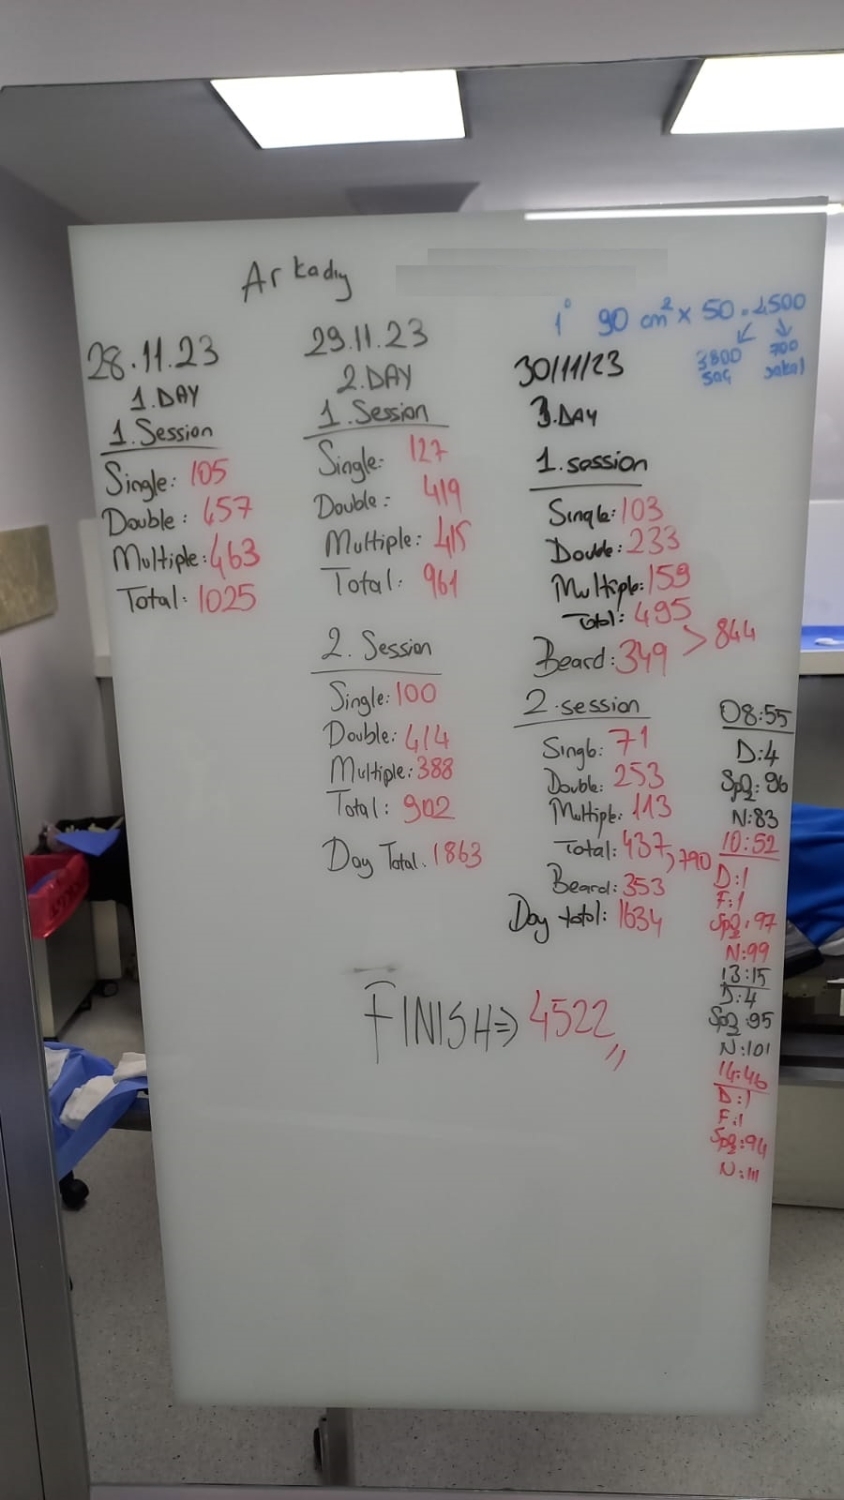 Arkadiy
1° 90 cm² x 50 = 4500
3800 700
saç sakal
28.11.23
1.DAY
1.Session
Single: 105
Double: 457
Multiple: 463
Total: 1025
29.11.23
2.DAY
1.Session
Single: 127
Double: 419
Multiple: 415
Total: 961
2. Session
Single: 100
Double: 414
Multiple: 388
Total: 902
Day Total: 1863
30/11/23
3.DAY
1.session
Single: 103
Double: 233
Multiple: 159
Total: 495
> 844
Beard: 349
2.session
Single: 71
Double: 253
Multiple: 113
Total: 437
790
Beard: 353
Day total: 1634
FINISH => 4522
08:55
D:4
SpO2: 96
N:83
10:52
D:1
F:1
SpO2: 97
N:99
13:15
D:4
SpO2: 95
N:101
14:46
D:1
F:1
SpO2: 94
N:111